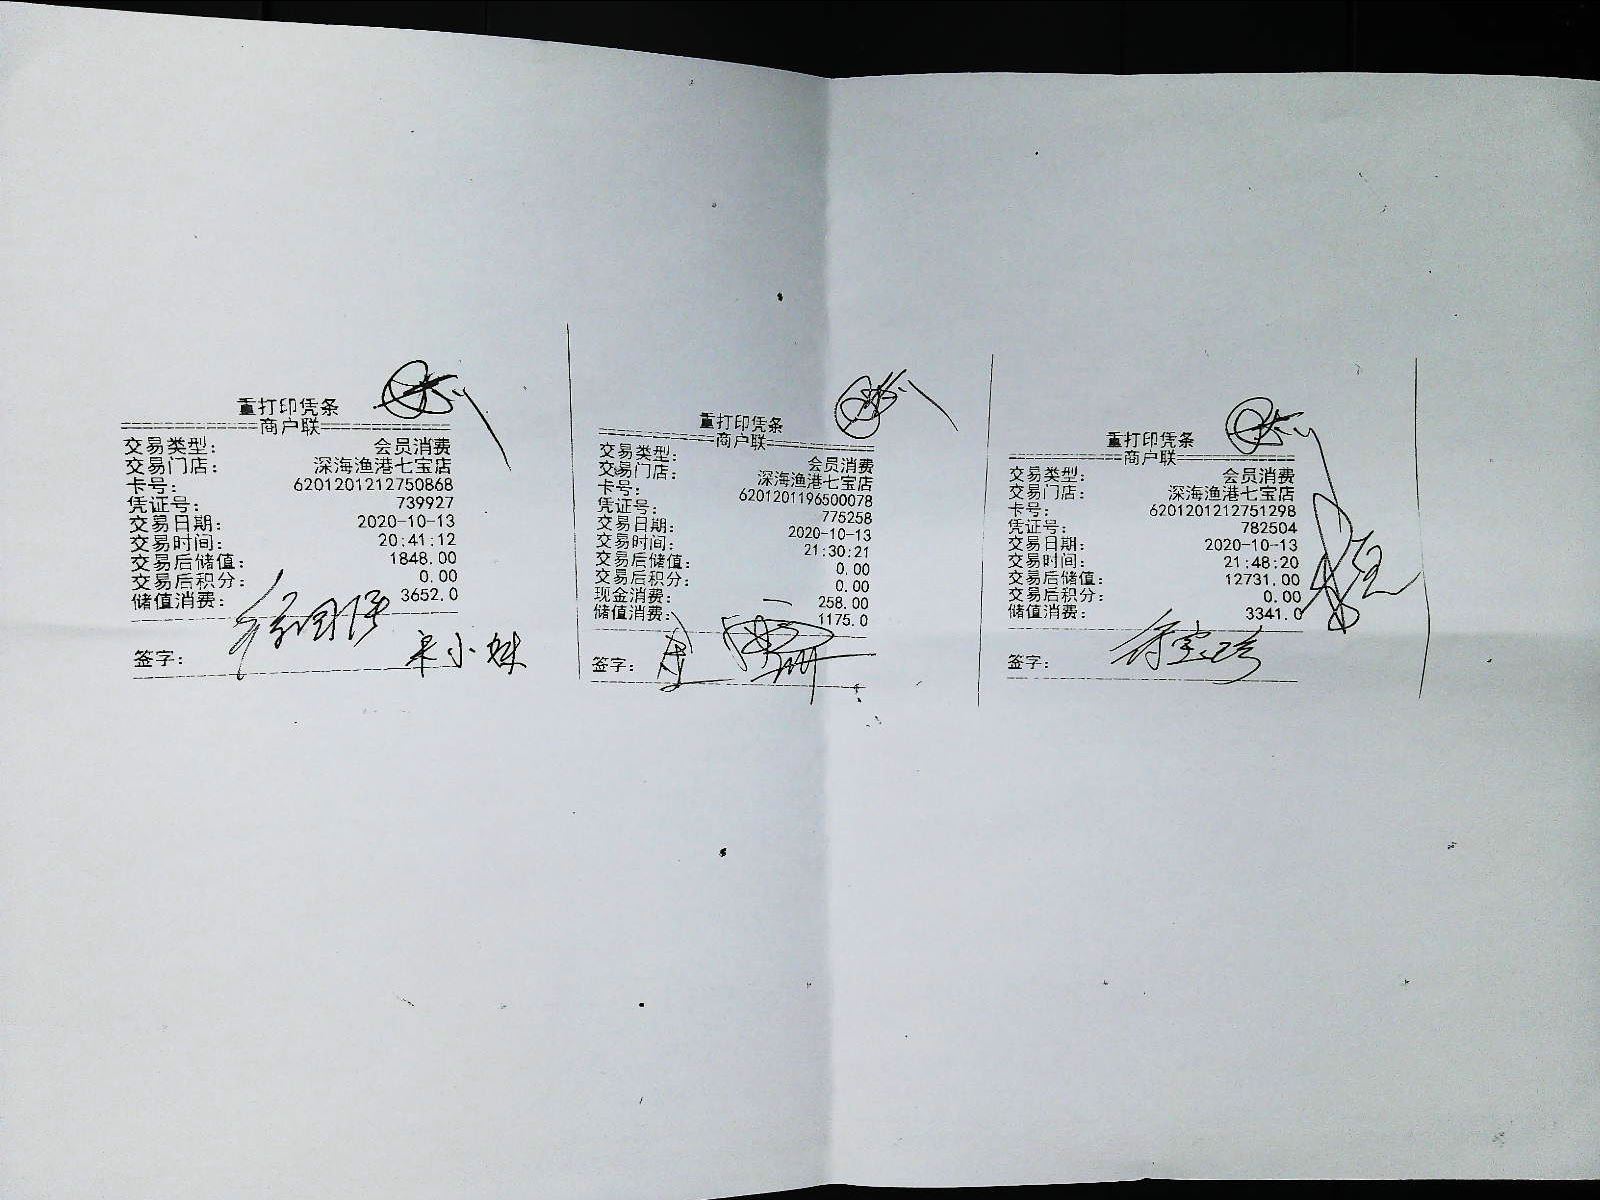 重打印凭条
==============商户联==============
交易类型: 会员消费
交易门店: 深海渔港七宝店
卡号: 6201201212750868
凭证号: 739927
交易日期: 2020-10-13
交易时间: 20:41:12
交易后储值: 1848.00
交易后积分: 0.00
储值消费: 3652.0
签字:
重打印凭条
==============商户联==============
交易类型: 会员消费
交易门店: 深海渔港七宝店
卡号: 6201201196500078
凭证号: 775258
交易日期: 2020-10-13
交易时间: 21:30:21
交易后储值: 0.00
交易后积分: 0.00
现金消费: 258.00
储值消费: 1175.0
签字:
重打印凭条
==============商户联==============
交易类型: 会员消费
交易门店: 深海渔港七宝店
卡号: 6201201212751298
凭证号: 782504
交易日期: 2020-10-13
交易时间: 21:48:20
交易后储值: 12731.00
交易后积分: 0.00
储值消费: 3341.0
签字: